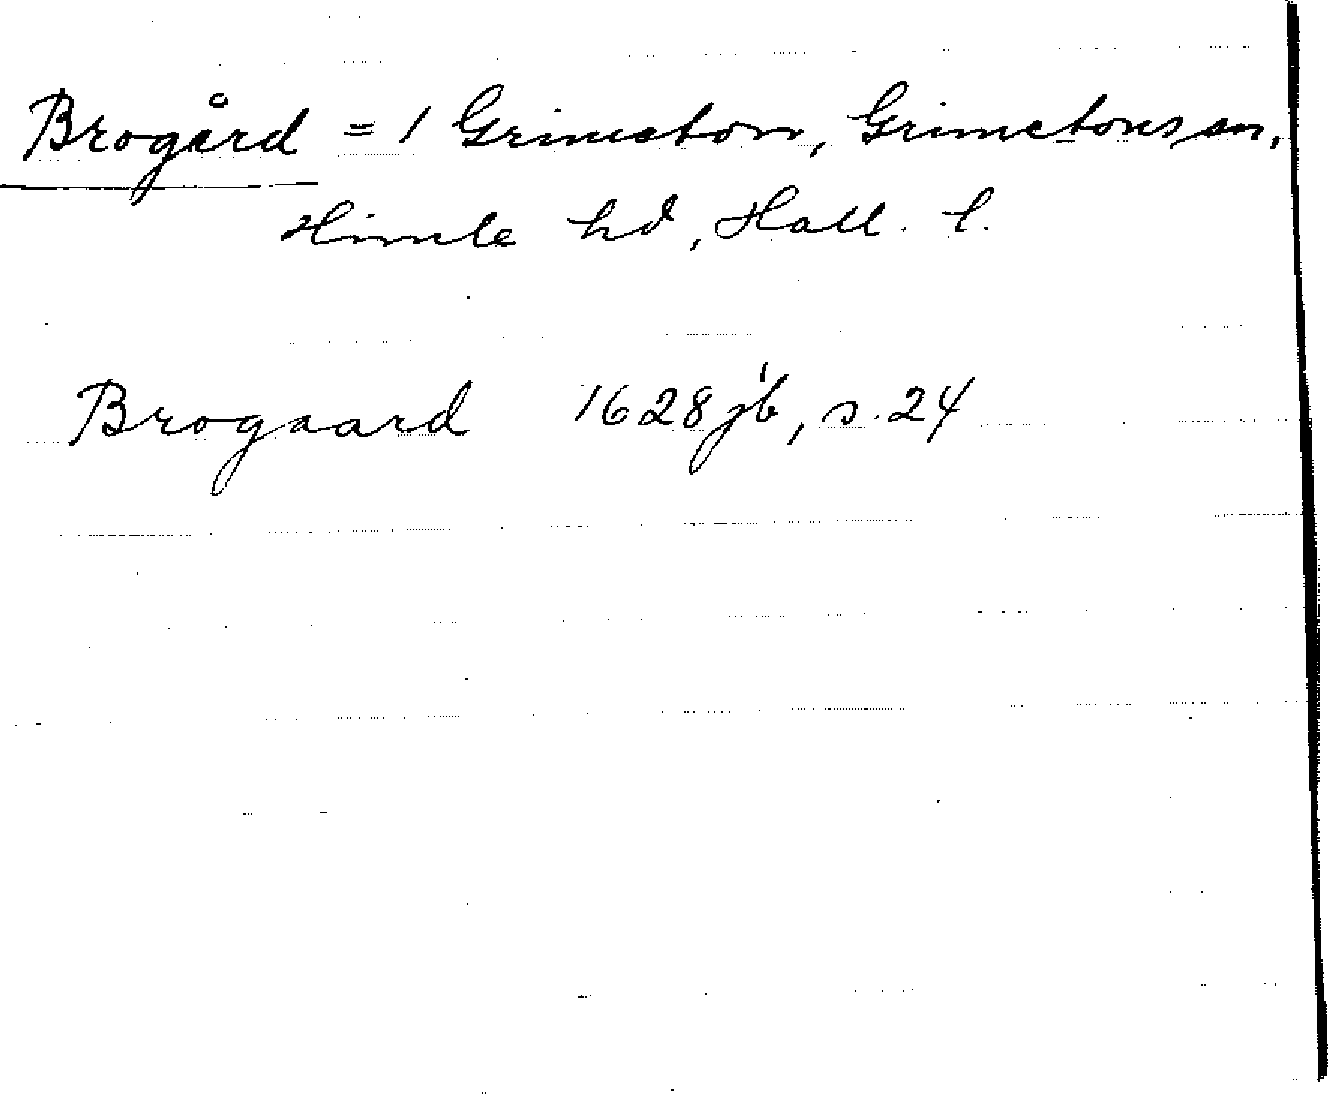 Brogård = 1 Grimeton, Grimetons sn,
Himle hd, Hall. l.
Brogaard 1628 jb, s. 24